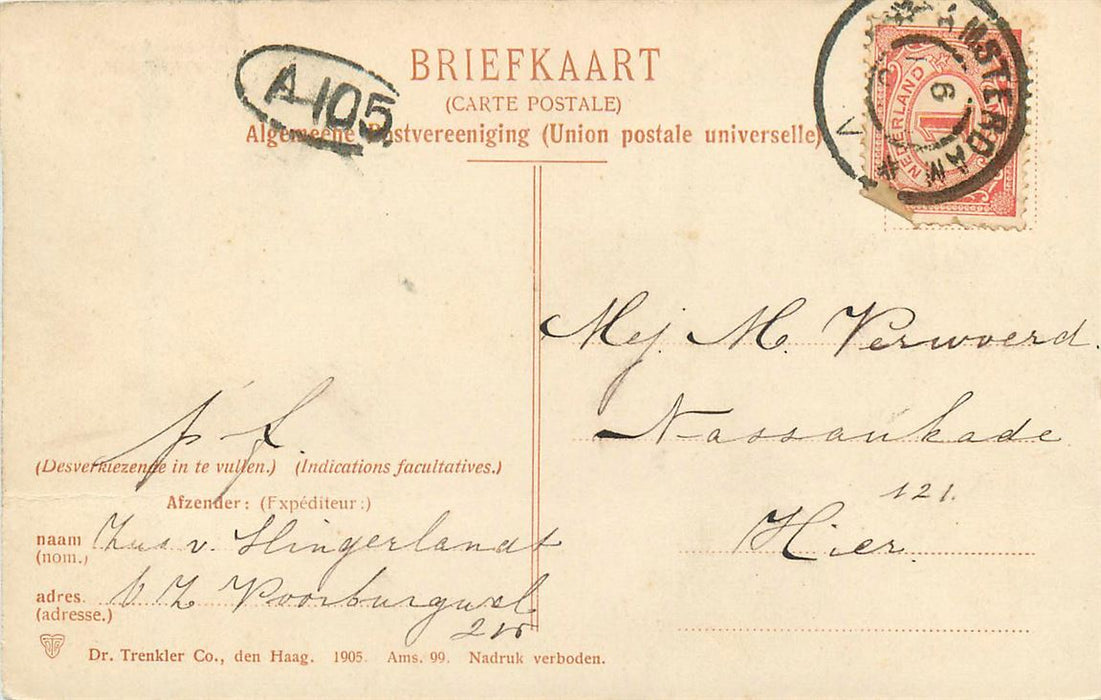 BRIEFKAART
(CARTE POSTALE)
Algemeene Postvereeniging (Union postale universelle)
A-105
AMSTERDAM
6
NEDERLAND
1
Mej. M. Verwoerd.
Nassaukade
121.
Hier.
p. f.
(Desverkiezende in te vullen.) (Indications facultatives.)
Afzender: (Expéditeur:)
naam v. Slingerlandt
(nom.)
adres. Voorburgwal
(adresse.)
Dr. Trenkler Co., den Haag. 1905. Ams. 99. Nadruk verboden.